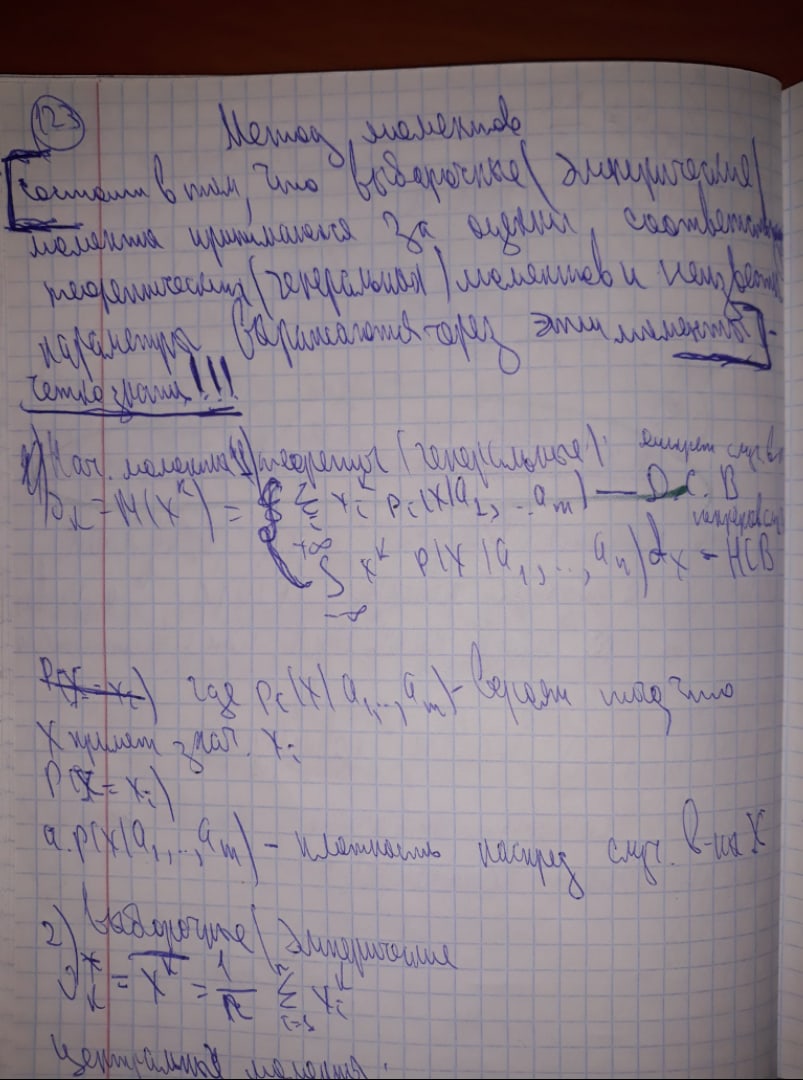 123
Метод моментов
Состоит в том, что выборочные (эмпирические)
моменты принимаются за оценки, соответств
теоретических (генеральных) моментов и неизвест
параметры выражаются через эти моменты.
Четко знать!!!
1) Нач. моменты теоретич (генеральные):
νk = M(X^k) = { Σ_i x_i^k p_i(x|a_1, ..., a_m) — Д.С.В
∫_{-∞}^{+∞} x^k p(x|a_1, ..., a_n)dx - НСВ
P(X = x_i) где p_i(x|a_1, ..., a_m) - вероятн того что
X примет знач. x_i
P(X = x_i)
а. p(x|a_1, ..., a_m) - плотность распред случ. в-ны X
2) Выборочные (эмпирические
ν*_k = x^k = 1/n Σ_{i=1} x_i^k
Центральные моменты: